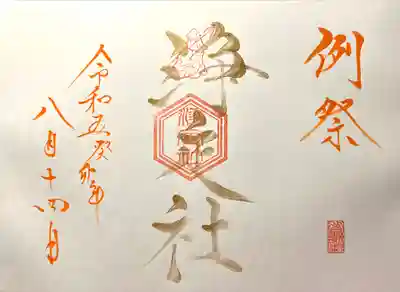 例祭
辨天社
令和五癸卯年
八月十四日